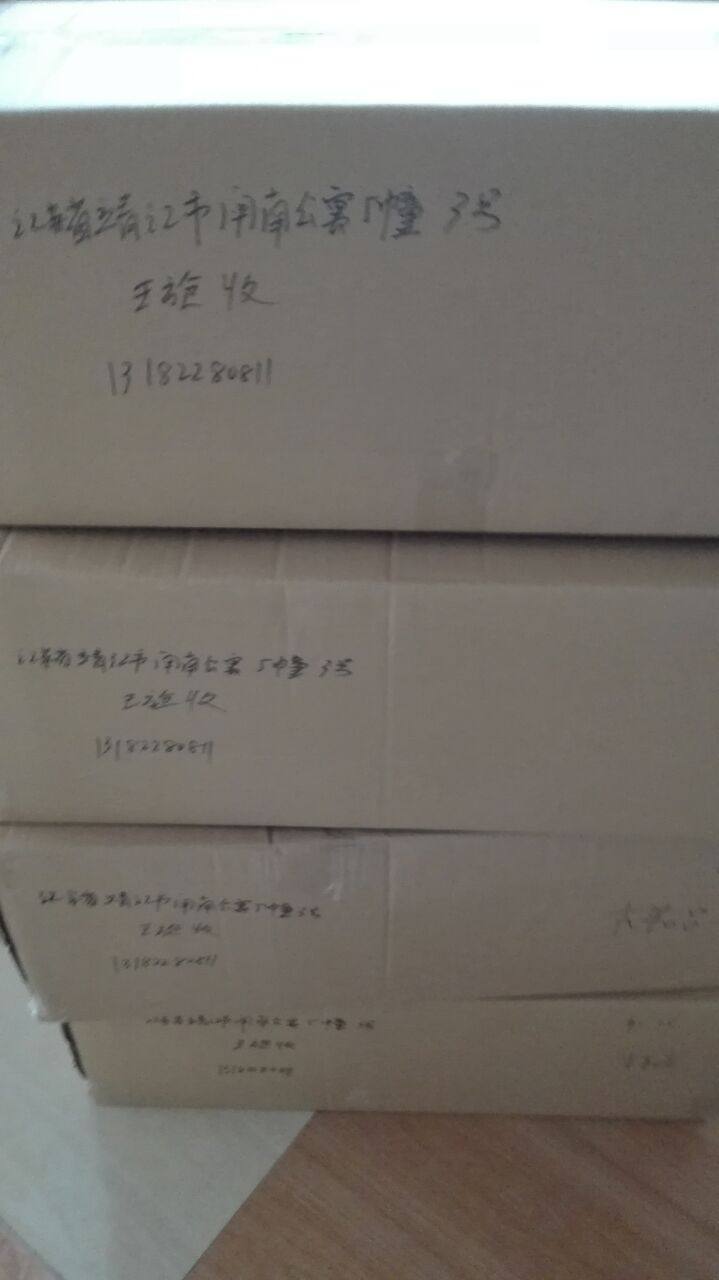 江苏省靖江市闸南公寓5幢3号
王旋收
13182280811
江苏省靖江市闸南公寓5幢3号
王旋收
13182280811
江苏省靖江市闸南公寓5幢3号
王旋收
13182280811
江苏省靖江市闸南公寓5幢3号
王旋收